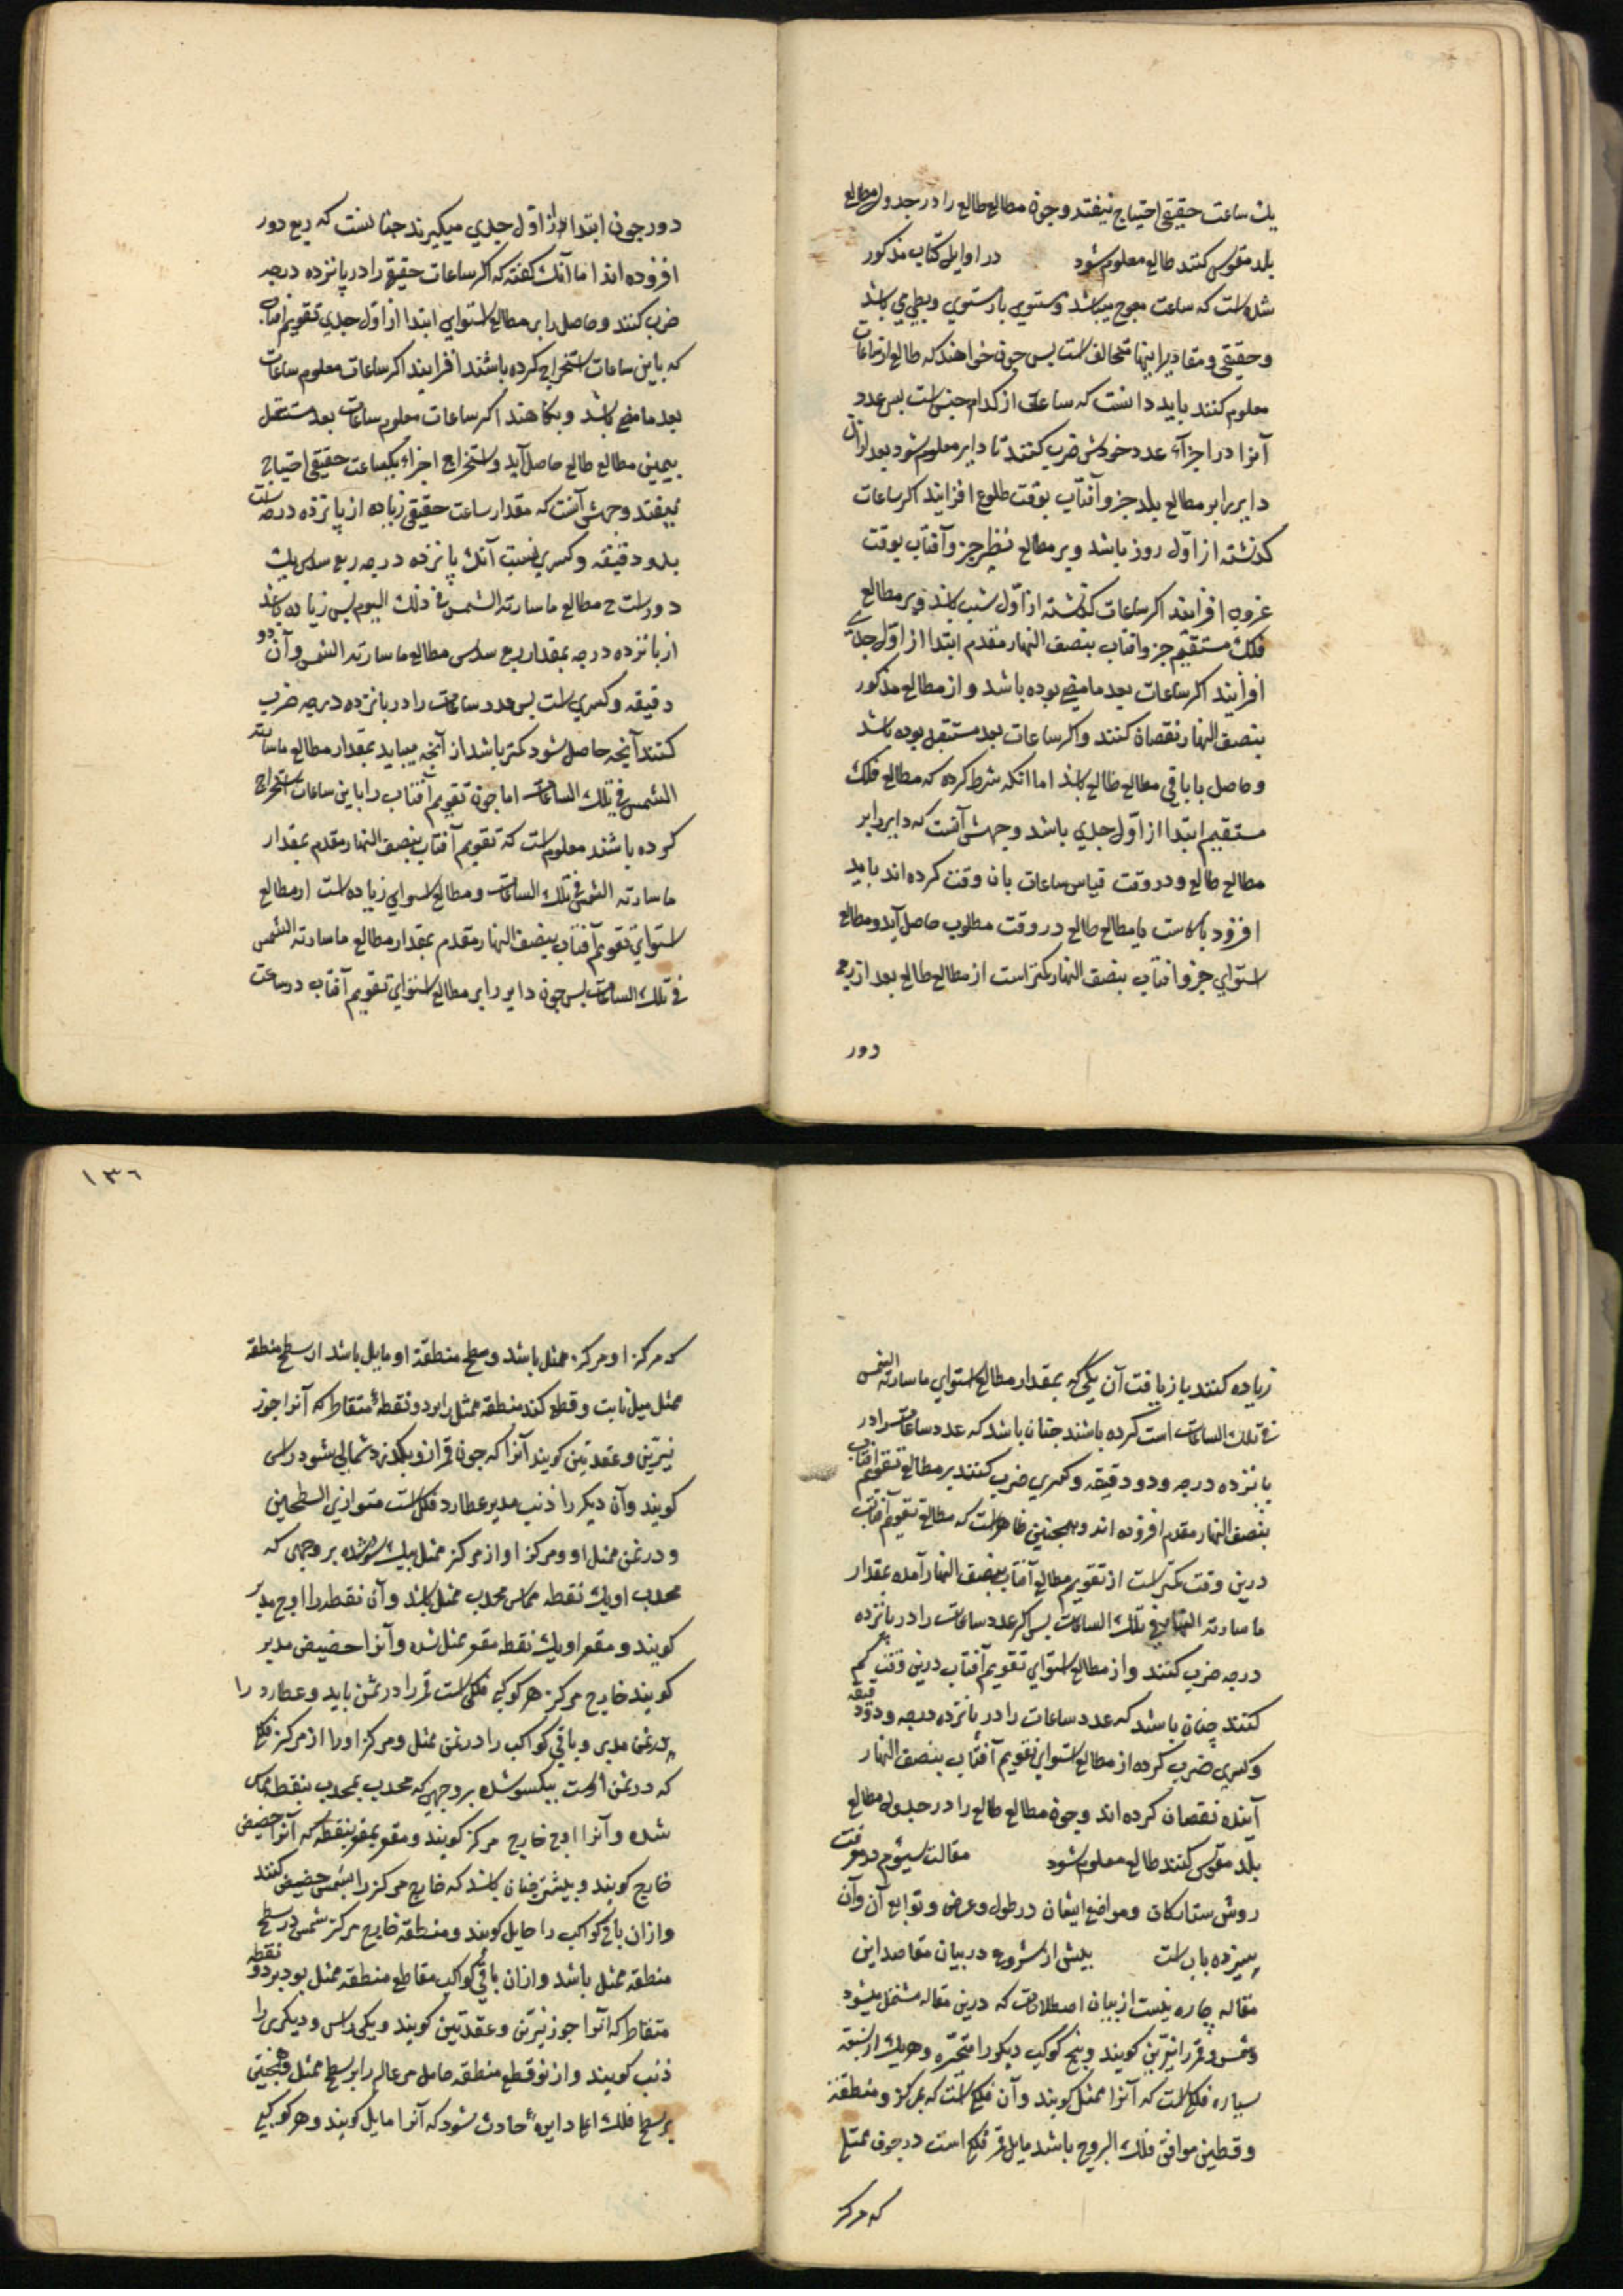 یك ساعت حقیقی احتیاج نیفتد و چون مطالع طالع را در جدول مطالع
بلد مقوس کنند طالع معلوم شود در اوایل کتاب مذکور
شده است که ساعت معوج میباشد و مستوی یا مستوی وسطی می باشد
و حقیقی و مقادیر اینها متخالف است پس چون خواهند که طالع از ساعات
معلوم کنند باید دانست که ساعات از کدام جنس است پس عدد
آنرا در اجزاء عدد خودش ضرب کنند تا دایر معلوم شود بعد از آن
دایر را بر مطالع بلد جزو آفتاب بوقت طلوع افزایند اکر ساعات
کذشته از اول روز باشد و بر مطالع نظیر جزو آفتاب بوقت
غروب افزایند اکر ساعات کذشته از اول شب باشد و بر مطالع
فلك مستقیم جزو افتاب بنصف النهار مقدم ابتدا از اول جدی
افزایند اکر ساعات بعد ما مضی بوده باشد و از مطالع مذکور
بنصف النهار نقصان کنند و اکر ساعات بعد مستقبل بوده باشد
و حاصل یا باقی مطالع طالع باشد اما انکه شرط کرده که مطالع فلك
مستقیم ابتدا از اول جدی باشد وجهش آنست که دایر را بر
مطالع طالع و در وقت قیاس ساعات بان وقت کرده اند باید
افزود یا کاست یا مطالع طالع در وقت مطلوب حاصل آید و مطالع
استوای جزو افتاب بنصف النهار کمتر است از مطالع طالع بعد از ربع
دور
دور چون ابتدا از اول جدی میکیرند چنانست که ربع دور
افزوده اند اما آنك کفته که اکر ساعات حقیقی را در پانزده درجه
ضرب کنند و حاصل را بر مطالع استوای ابتدا از اول جدی تقویم افتاب
که باین ساعات استخراج کرده باشند افزایند اکر ساعات معلوم ساعات
بعد ما مضی باشد و بکاهند اکر ساعات معلوم ساعات بعد مستقبل
بعینی مطالع طالع حاصل آید و استخراج اجزاء یکساعت حقیقی احتیاج
نیفتد وجهش آنست که مقدار ساعت حقیقی زیاده از پانزده درجه است
بدو دقیقه و کسری بسبب آنك پانزده درجه ربع سدس یك
دورست ح مطالع ما سارته الشمس فی ذلك الیوم پس زیاده باشد
از پانزده درجه بمقدار ربع سدس مطالع ما سارته الشمس و آن دو
دقیقه و کسری است پس عدد ساعات را در پانزده درجه ضرب
کنند آنچه حاصل شود کمتر باشد از آنچه میباید بمقدار مطالع ما سارته
الشمس فی تلك الساعات اما چون تقویم آفتاب را باین ساعات استخراج
کرده باشند معلوم است که تقویم آفتاب بنصف النهار مقدم بمقدار
ما سارته الشمس فی تلك الساعات و مطالع استوای زیاده است از مطالع
استوای تقویم آفتاب بنصف النهار مقدم بمقدار مطالع ما سارته الشمس
فی تلك الساعات پس چون دایر را بر مطالع استوای تقویم آفتاب در ساعت
زیاده کنند باز یافت آن یکی که بمقدار مطالع استوای ما سارته الشمس
فی تلك الساعات است کرده باشند چنان باشد که عدد ساعات را در
پانزده درجه و دو دقیقه و کسری ضرب کنند بر مطالع تقویم افتاب
بنصف النهار مقدم افزوده اند و همچنین ظاهر است که مطالع تقویم آفتاب
درین وقت کمتر است از تقویم مطالع آفتاب بنصف النهار آمده بمقدار
ما سارته الشمس فی تلك الساعات پس اکر عدد ساعات را در پانزده
درجه ضرب کنند و از مطالع استوای تقویم آفتاب درین وقت کم
کنند چنان باشد که عدد ساعات را در پانزده درجه و دو دقیقه
و کسری ضرب کرده از مطالع استوای تقویم آفتاب بنصف النهار
آینده نقصان کرده اند و چون مطالع طالع را در جدول مطالع
بلد مقوس کنند طالع معلوم شود مقالت سیوم در معرفت
روش ستارکان و مواضع ایشان در طول و عرض و توابع آن و آن
سیزده باب است پیش از شروع در بیان مقاصد این
مقاله چاره نیست از بیان اصطلاحات که درین مقاله مشتمل میشود
شمس و قمر را نیرین کویند و پنج کوکب دیکر را متحیره و هر یك از سبعه
سیاره فلکی است که آنرا ممثل کویند و آن فلکی است که بمرکز و منطقه
و قطبین موافق فلك البروج باشد مایل قمر فلکی است در جوف ممثل
که مرکز
١٣٦
که مرکز او مرکز ممثل باشد و سطح منطقه او مایل باشد از سطح منطقه
ممثل میل ثابت و قطع کند منطقه ممثل را بر دو نقطهٔ متقاطر که آنرا جوز
نیرین و عقدتین کویند آنرا که چون قمر ازو بکذرد شمالی شود راس
کویند و آن دیکر را ذنب مدیر عطارد فلکی است متوازی السطحین
و در ثخن ممثل او و مرکز او از مرکز ممثل بیك سو شده بر وجهی که
محدب او بیك نقطه مماس محدب ممثل باشد و آن نقطه را اوج مدیر
کویند و مقعر او بیك نقطه مقعر ممثل شده و آنرا حضیض مدیر
کویند خارج مرکز هر کوکبی فلکی است قمر را در ثخن مایل و عطارد را
در ثخن مدیر و باقی کواکب را در ثخن ممثل و مرکز او را از مرکز فلکی
که در ثخن اوست بیکسو شده بر وجهی که محدب بمحدب بنقطه مماس
شده و آنرا اوج خارج مرکز کویند و مقعر بمقعر بنقطه که آنرا حضیض
خارج کویند و بیشتر چنان باشد که خارج مرکز را بشمس حضیض کنند
و ازان باقی کواکب را حامل کویند و منطقه خارج مرکز شمس در سطح
منطقه ممثل باشد و ازان باقی کواکب مقاطع منطقه ممثل بود بر دو نقطه
متقاطر که آنرا جوزنیرین و عقدتین کویند و یکی را راس و دیکری را
ذنب کویند و از توقطع منطقه حامل مر عالم را بر سطح ممثل و همچنین
بر سطح فلك اعلا دایرهٔ حادث شود که آنرا مایل کویند و هر کوکبی